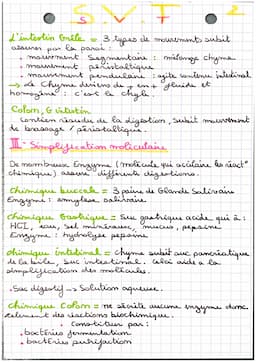 S.V.T 2
L'intestin Grêle = 3 types de mouvements subit
assurer par la paroi :
. mouvement segmentaire : mélange chyme
. mouvement péristaltique
. mouvement pendulaire : agite contenu intestinal
→ Le Chyme deviens de + en + fluide et
homogène : c'est le chyle
Colon, G intestin
Contien résidu de la digestion, subit mouvement
de brassage / péristaltique.
III - Simplification moléculaire
De nombreux Enzyme (molécule qui accélère les réact°
chimique) assure différents digestions.
chimique buccale = 3 paires de Glande Salivaire
Enzyme : amylase salivaire
chimique Gastrique = Suc gastrique acide, qui a :
HCl, eau, sel minéraux, mucus, pepsine
Enzyme : hydrolyse pepsine
chimique intestinal = chyme subit suc pancréatique
de la bile, suc intestinal. cela aide a la
simplification des molécules.
. Suc digestif → Solution aqueuse.
chimique Colon = ne sécrète aucune enzyme donc
des réactions biochimique.
Constituer par :
. bactéries fermentation
. bactéries putréfaction